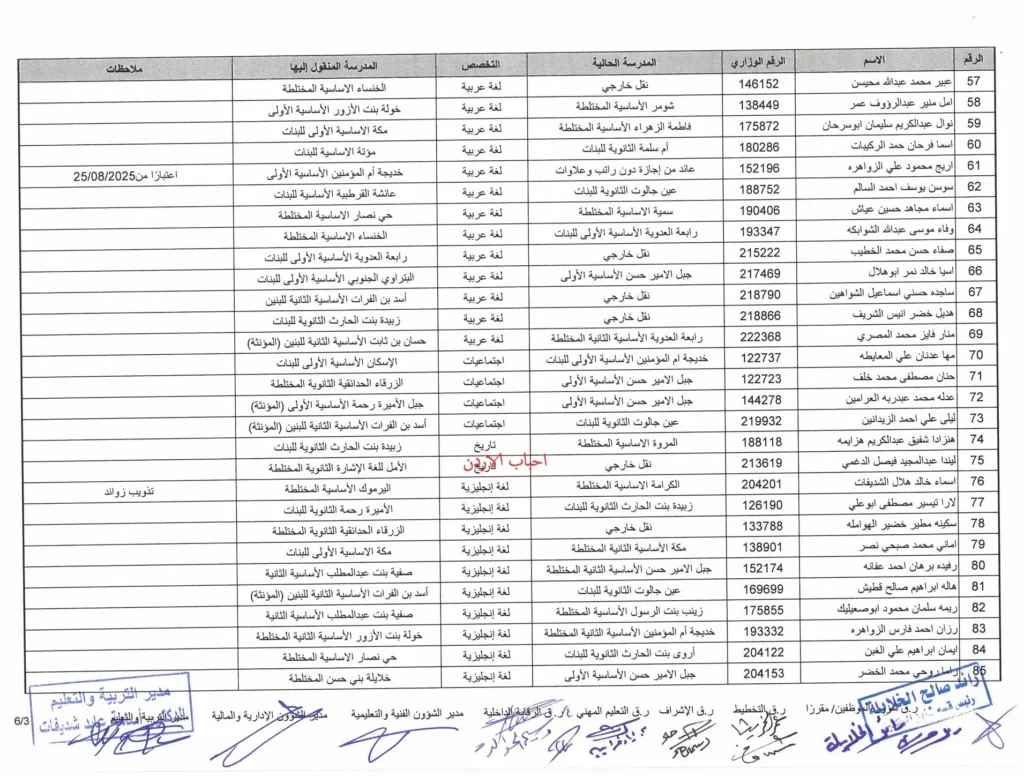 الرقم الاسم الرقم الوزاري المدرسة الحالية التخصص المدرسة المنقول إليها ملاحظات
57 عبير محمد عبدالله محيسن 146152 نقل خارجي لغة عربية الخنساء الاساسية المختلطة
58 امل منير عبدالرؤوف عمر 138449 شومر الأساسية المختلطة لغة عربية خولة بنت الأزور الأساسية الأولى
59 نوال عبدالكريم سليمان ابوسرحان 175872 فاطمة الزهراء الأساسية المختلطة لغة عربية مكة الاساسية الأولى للبنات
60 اسما فرحان حمد الركيبات 180286 أم سلمة الثانوية للبنات لغة عربية مؤتة الاساسية للبنات
61 اريج محمود علي الزواهره 152196 عائد من إجازة دون راتب وعلاوات لغة عربية خديجة أم المؤمنين الأساسية الأولى اعتبارًا من25/08/2025
62 سوسن يوسف احمد السالم 188752 عين جالوت الثانوية للبنات لغة عربية عائشة القرطبية الأساسية للبنات
63 اسماء مجاهد حسين عياش 190406 سمية الاساسية المختلطة لغة عربية حي نصار الاساسية المختلطة
64 وفاء موسى عبدالله الشوابكه 193347 رابعة العدوية الأساسية الأولى للبنات لغة عربية الخنساء الاساسية المختلطة
65 صفاء حسن محمد الخطيب 215222 نقل خارجي لغة عربية رابعة العدوية الأساسية الأولى للبنات
66 اسيا خالد نمر ابوهلال 217469 جبل الامير حسن الأساسية الأولى لغة عربية البتراوي الجنوبي الأساسية الأولى للبنات
67 ساجده حسني اسماعيل الشواهين 218790 نقل خارجي لغة عربية أسد بن الفرات الأساسية الثانية للبنين
68 هديل خضر انيس الشريف 218866 نقل خارجي لغة عربية زبيدة بنت الحارث الثانوية للبنات
69 منار فايز محمد المصري 222368 رابعة العدوية الأساسية الثانية المختلطة لغة عربية حسان بن ثابت الأساسية الثانية للبنين (المؤنثة)
70 مها عدنان علي المعايطه 122737 خديجة ام المؤمنين الأساسية الأولى للبنات اجتماعيات الإسكان الأساسية الأولى للبنات
71 حنان مصطفى محمد خلف 122723 جبل الامير حسن الأساسية الأولى اجتماعيات الزرقاء الحدائقية الثانوية المختلطة
72 عدله محمد عبدربه العرامين 144278 جبل الامير حسن الأساسية الأولى اجتماعيات جبل الأميرة رحمة الأساسية الأولى (المؤنثة)
73 ليلى علي احمد الزيدانين 219932 عين جالوت الثانوية للبنات اجتماعيات أسد بن الفرات الأساسية الثانية للبنين (المؤنثة)
74 هنزادا شفيق عبدالكريم هزايمه 188118 المروة الاساسية المختلطة تاريخ زبيدة بنت الحارث الثانوية للبنات
75 ليندا عبدالمجيد فيصل الدغمي 213619 نقل خارجي تاريخ الأمل للغة الإشارة الثانوية المختلطة
احباب الاردن
76 اسماء خالد هلال الشديفات 204201 الكرامة الاساسية المختلطة لغة إنجليزية اليرموك الأساسية المختلطة تذويب زوائد
77 لارا تيسير مصطفى ابوعلي 126190 زبيدة بنت الحارث الثانوية للبنات لغة إنجليزية الأميرة رحمة الثانوية للبنات
78 سكينه مطير خضير الهوامله 133788 نقل خارجي لغة إنجليزية الزرقاء الحدائقية الثانوية المختلطة
79 اماني محمد صبحي نصر 138901 مكة الأساسية الثانية المختلطة لغة إنجليزية مكة الاساسية الأولى للبنات
80 رفيده برهان احمد عفانه 152174 جبل الامير حسن الأساسية الثانية المختلطة لغة إنجليزية صفية بنت عبدالمطلب الأساسية الثانية
81 هاله ابراهيم صالح قطيش 169699 عين جالوت الثانوية للبنات لغة إنجليزية أسد بن الفرات الأساسية الثانية للبنين (المؤنثة)
82 ريمه سلمان محمود ابوصعيليك 175855 زينب بنت الرسول الأساسية المختلطة لغة إنجليزية صفية بنت عبدالمطلب الأساسية الثانية
83 رزان احمد فارس الزواهره 193332 خديجة أم المؤمنين الأساسية الثانية المختلطة لغة إنجليزية خولة بنت الأزور الأساسية الثانية المختلطة
84 ايمان ابراهيم علي الغبن 204122 أروى بنت الحارث الثانوية للبنات لغة إنجليزية حي نصار الاساسية المختلطة
85 راما روحي محمد الخضر 204153 جبل الامير حسن الأساسية الأولى لغة إنجليزية خلايلة بني حسن المختلطة
رائد صالح الخلايلة
رئيس قسم
ر.ق شؤون الموظفين/ مقررًا ر.ق التخطيط ر.ق الإشراف ر.ق التعليم المهني ر.ق الرقابة الداخلية مدير الشؤون الفنية والتعليمية مدير الشؤون الإدارية والمالية مدير التربية والتعليم
مدير التربية والتعليم
شديفات
6/3